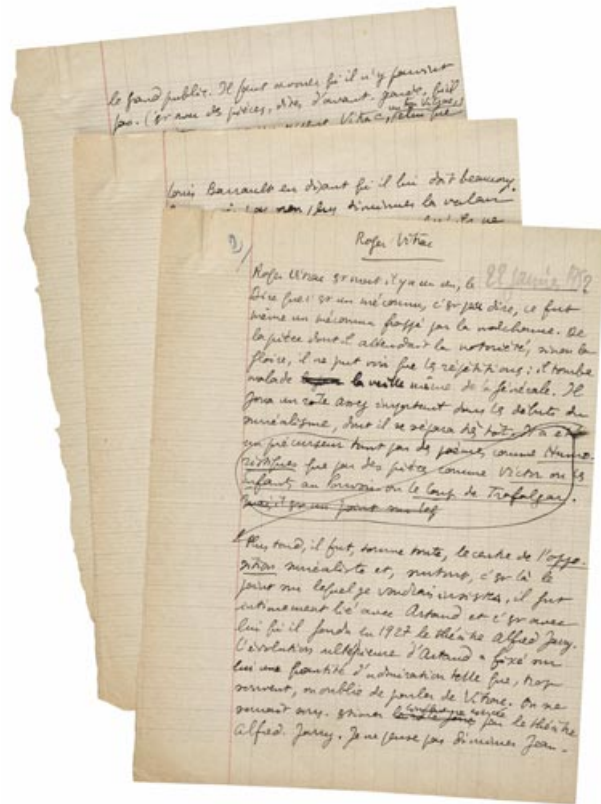 le grand public. Il faut avouer qu'il n'y parvint
pas. C'est avec des pièces, dites d'avant-garde, qu'il
Vitrac,
Louis Barrault en disant qu'il lui doit beaucoup.
diminuer la valeur
2/
Roger Vitrac
Roger Vitrac est mort il y a un an, le 22 janvier 1952
Dire que c'est un méconnu, c'est peu dire, ce fut
même un méconnu frappé par la malchance. De
la pièce dont il attendait la notoriété, sinon la
gloire, il ne put voir que les répétitions : il tomba
malade la veille même de la générale. Il
joua un rôle assez important dans les débuts du
surréalisme, dont il se sépara très tôt. Il a été
un précurseur tant par des poèmes comme Humo-
ristiques que par des pièces comme Victor ou les
enfants au pouvoir ou le Coup de Trafalgar.
Mais, il est un point sur leq
Plus tard, il fut, somme toute, le centre de l'oppo-
sition surréaliste et, surtout, c'est là le
point sur lequel je voudrais insister, il fut
intimement lié avec Artaud et c'est avec
lui qu'il fonda en 1927 le théâtre Alfred Jarry.
L'évolution ultérieure d'Artaud a fixé sur
lui une quantité d'admiration telle que, trop
souvent, on oublie de parler de Vitrac. On ne
saurait sous-estimer l'influence exercée par le théâtre
Alfred-Jarry. Je ne pense pas diminuer Jean-